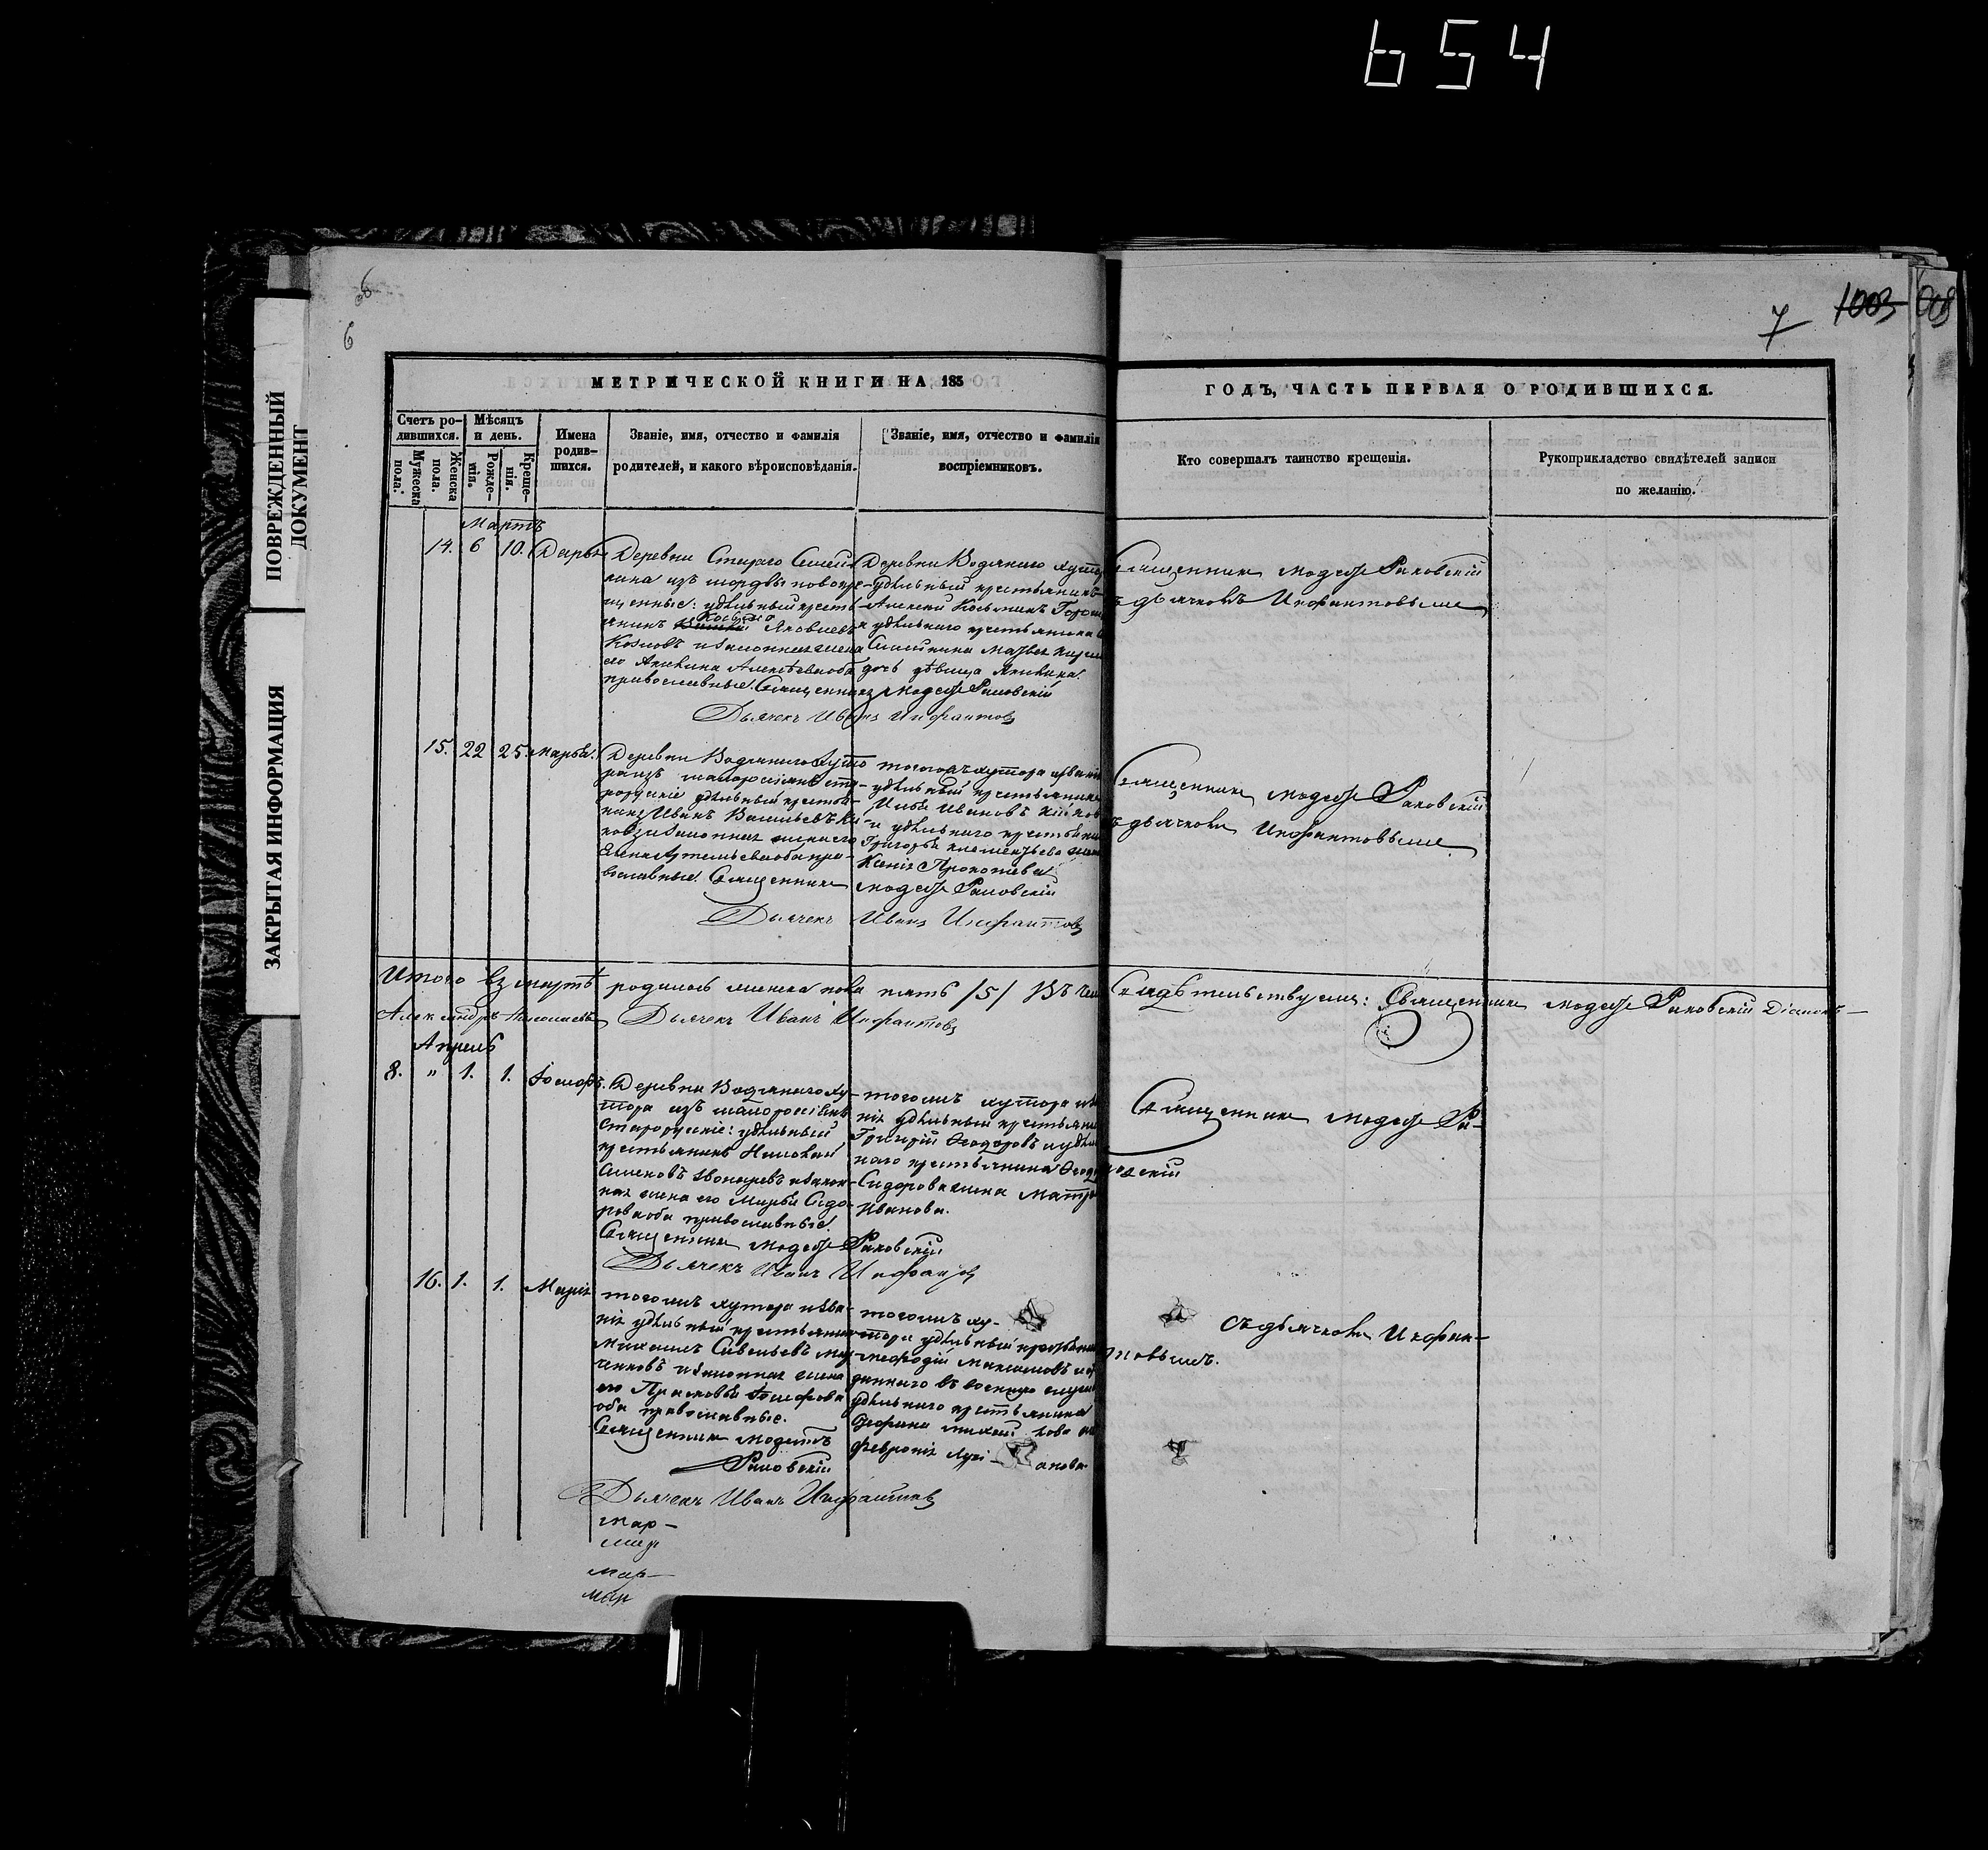 654
об
6
7 1003 008
ПОВРЕЖДЕННЫЙ
ДОКУМЕНТ
ЗАКРЫТАЯ ИНФОРМАЦИЯ
МЕТРИЧЕСКОЙ КНИГИ НА 185
ГОДЪ, ЧАСТЬ ПЕРВАЯ О РОДИВШИХСЯ.
Счетъ ро-
дившихся.
Мужеска
пола.
Женска
пола.
Мѣсяцъ
и день.
Рожде-
нія.
Креще-
нія.
Имена
родив-
шихся.
Званіе, имя, отчество и фамилія
родителей, и какого вѣроисповѣданія.
Званіе, имя, отчество и фамилія
воспріемниковъ.
Кто совершалъ таинство крещенія.
Рукоприкладство свидѣтелей записи
по желанію.
Мартъ
14. 6 10. Дарья
Деревни Стараго Семей-
кина изъ мордвы новокре-
щенные: удѣльный кресть-
янинъ Косьма Яковлевъ
Козловъ и законная жена
его Акилина Алексѣева оба
православные. Священникъ Модестъ Раковскій
Дьячекъ Иванъ Инфантовъ
Деревни Водянаго хутора
удѣльный крестьянинъ
Алексей Косьминъ
и удѣльнаго крестьянина
Семейкина Матвея
дочь дѣвица Акилина.
Священникъ Модестъ Раковскій
съ дьячкомъ Инфантовымъ
15. 22 25. Марья.
Деревни Водянаго Хуто
ра изъ малороссіянъ ста-
рорускіе удѣльный крестья-
нинъ Иванъ Васильевъ
и законная жена его
Елена Артемьева оба пра-
вославные. Священникъ Модестъ Раковскій
Дьячекъ Иванъ Инфантовъ
тогожъ хутора и званія
удѣльный крестьянинъ
Илья Ивановъ
и удѣльнаго крестьянина
Григорья Клементьева жена
Ксенія Прокопьева
Священникъ Модестъ Раковскій
съ дьячкомъ Инфантовымъ
Итого въ мартѣ родилось женска пола пять /5/ Въ чемъ Свидѣтельствуемъ: Священникъ Модестъ Раковскій Діаконъ
Александръ Николаевъ Дьячекъ Иванъ Инфантовъ
Апрель
8. " 1. 1. Іосифъ.
Деревни Водянаго ху-
тора изъ малороссіянъ
старорускіе: удѣльный
крестьянинъ
Семеновъ Гончаревъ и закон-
ная жена его Марья Сидо-
рова оба православные.
Священникъ Модестъ Раковскій
Дьячекъ Иванъ Инфантовъ
тогожъ хутора и зва
нія удѣльный крестьянинъ
Григорій Ѳеодоровъ и удѣль
наго крестьянина
Сидорова жена Матрена
Иванова.
Священникъ Модестъ Ра-
ковскій
16. 1. 1. Марія
тогожъ хутора и зва-
нія удѣльный крестьянинъ
Михаилъ Савельевъ
и законная жена
его Прасковья Іосифова
оба православные.
Священникъ Модестъ
Раковскій
Дьячекъ Иванъ Инфантовъ
тогожъ ху-
тора удѣльный крестьянинъ
Меѳодій Максимовъ и от
даннаго въ военную службу
удѣльнаго крестьянина
жена
Февронія Лукі-анова
съ дьячкомъ Инфан-
товымъ.
мар-
мар
мар-
мар